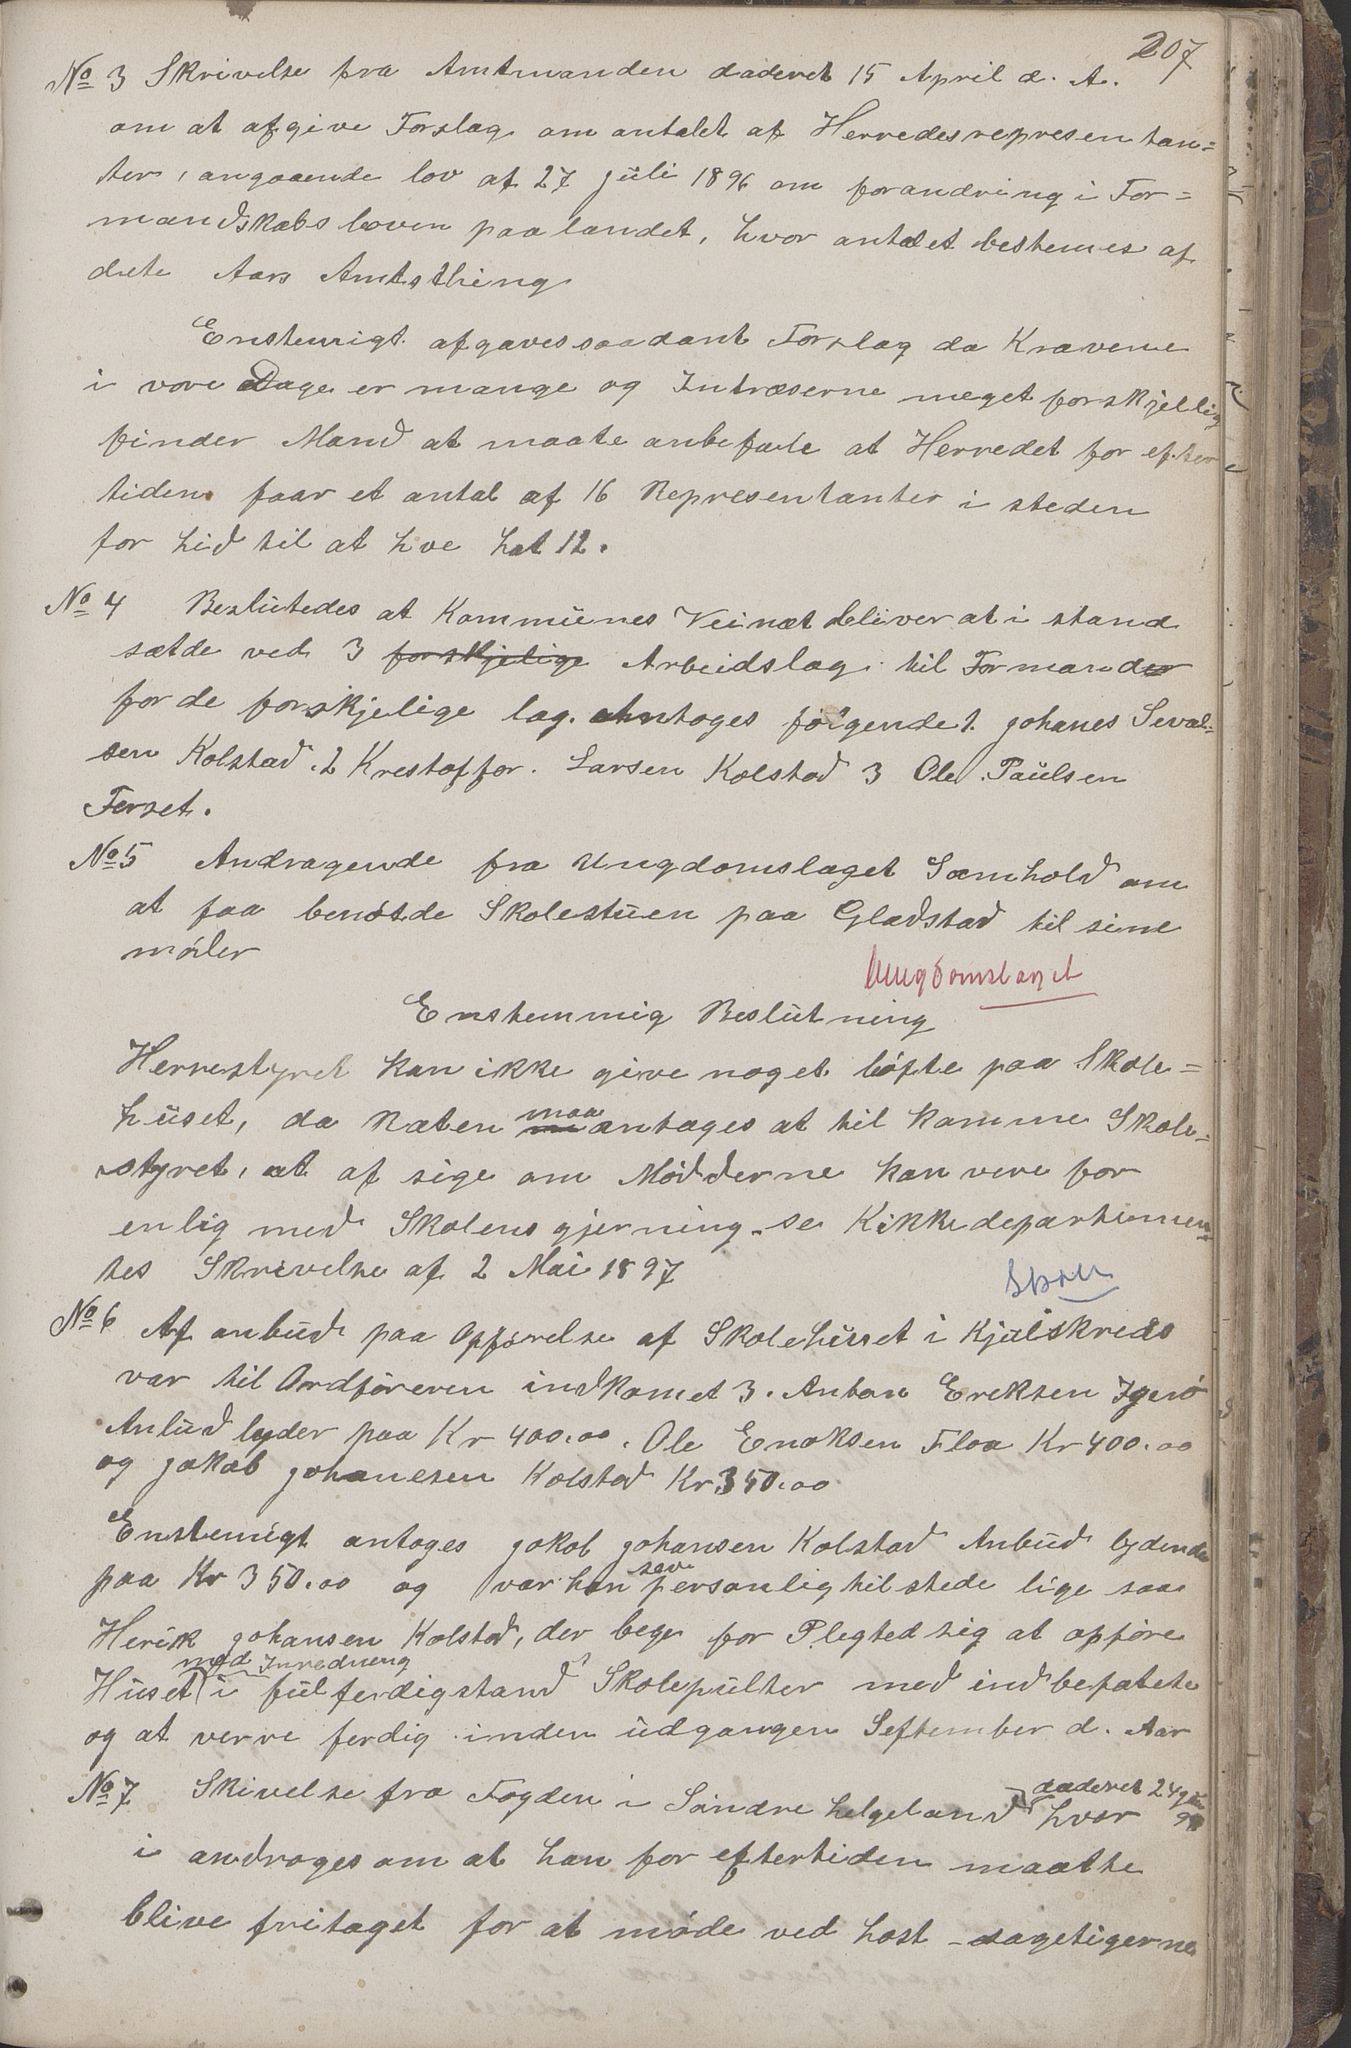 207
No 3 Skrivelse fra Amtmanden daderet 15 April d. A.
om at afgive Forslag om antalet af Herredesrepresentan=
ter, angaaende lov af 27 juli 1896 om forandring i For=
mandskabsloven paa landet, hvor antalet bestemes af
dete Aars Amtsthing
Enstemigt afgaves saadant Forslag da Kravene
i vore Dage er mange og Intræserne meget forskjellig
finder Mand at maate anbefale at Herredet for efter
tiden faar et antal af 16 Representanter i steden
for hid til at hve hat 12.
No 4 Beslutedes at Kommunes Veinæt bliver at i stand
satde ved 3 forskjelige Arbeidslag til Formand
for de forskjelige lag antoges følgende 1. Johanes Seval=
sen Kolstad. 2 Krestoffor. Larsen Kolstad 3 Ole Paulsen
Forset.
No 5 Andragende fra Ungdomslaget Samhold om
at faa benøtde Skolestuen paa Gladstad til sine
møder
Ungdomslaget
Enstemmig Beslutning
Herrestyret kan ikke give noget løfte paa Skole=
huset, da Raten maa antages at til komme Skole=
styret, at af sige om Mødderne kan vere for
enlig med Skolens gjerning. se Kirkedepartemen=
tes Skrivelse af 2 Mai 1897
Skole
No 6 Af anbud paa Opførelse af Skolehusset i Kjulskreds
var til Ordføreren indkomet 3. Anton Eriksen Igerø
Anbud lyder paa Kr 400.00. Ole Enoksen Floa Kr 400.00
og Jakob Johanesen Kolstad Kr 350.00
Enstemigt antoges Jakob Johansen Kolstad Anbud lydende
paa Kr 350.00 og var han selv personlig tilstede lige saa
Herik Johansen Kolstad, der bege for Plegted sig at opføre
med Inredneng
Huset i fulferdigstand Skolepulter med indbefatete
og at verre ferdig inden udgangen Seftember d. Aar
No 7 Skivelse fra Fogden i Søndre helgeland daderet 24 hvor
i androges om at han for eftertiden maatte
blive fritaget for at møde ved høst